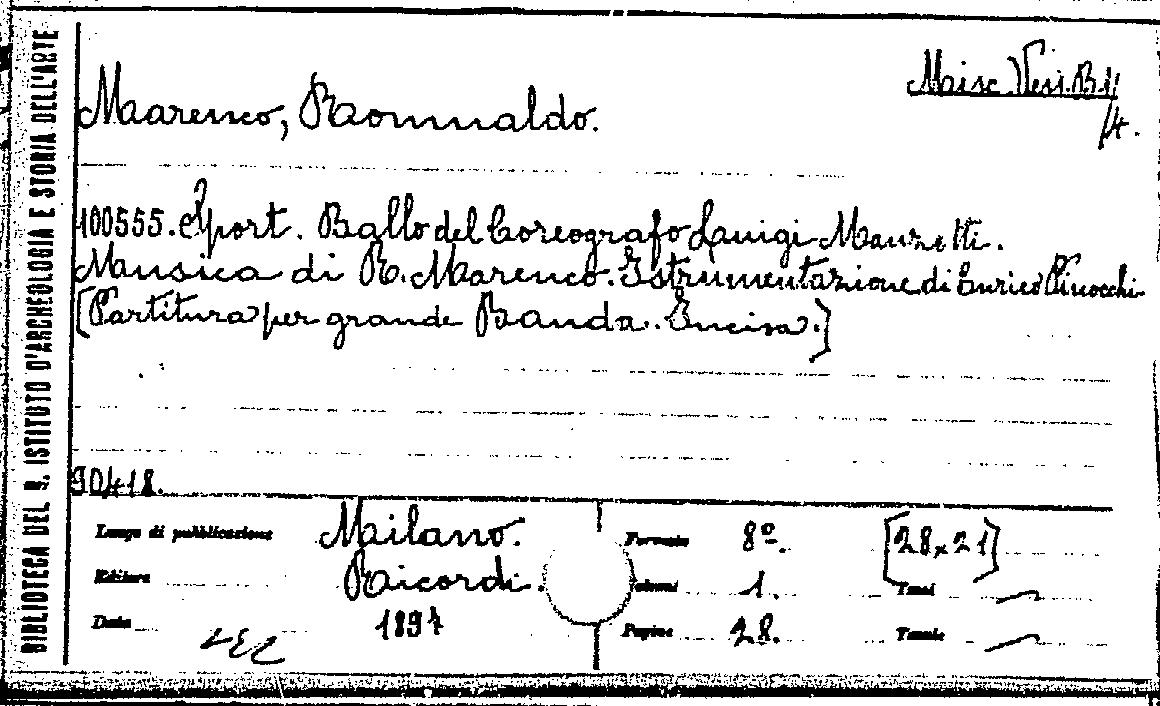 BIBLIOTECA DEL R. ISTITUTO D'ARCHEOLOGIA E STORIA DELL'ARTE
Misc. Vess. B 11
/4.
Marenco, Romualdo.
100555. Sport. Ballo del Coreografo Luigi Manzotti.
Musica di R. Marenco. Istrumentazione di Enrico Pinocchi
[Partitura per grande Banda. Incisa.]
90418.
Luogo di pubblicazione Milano. Formato 8º. [28x21]
Editore Ricordi. Volumi 1. Tomi —
Data 1897 Pagine 28. Tavole —